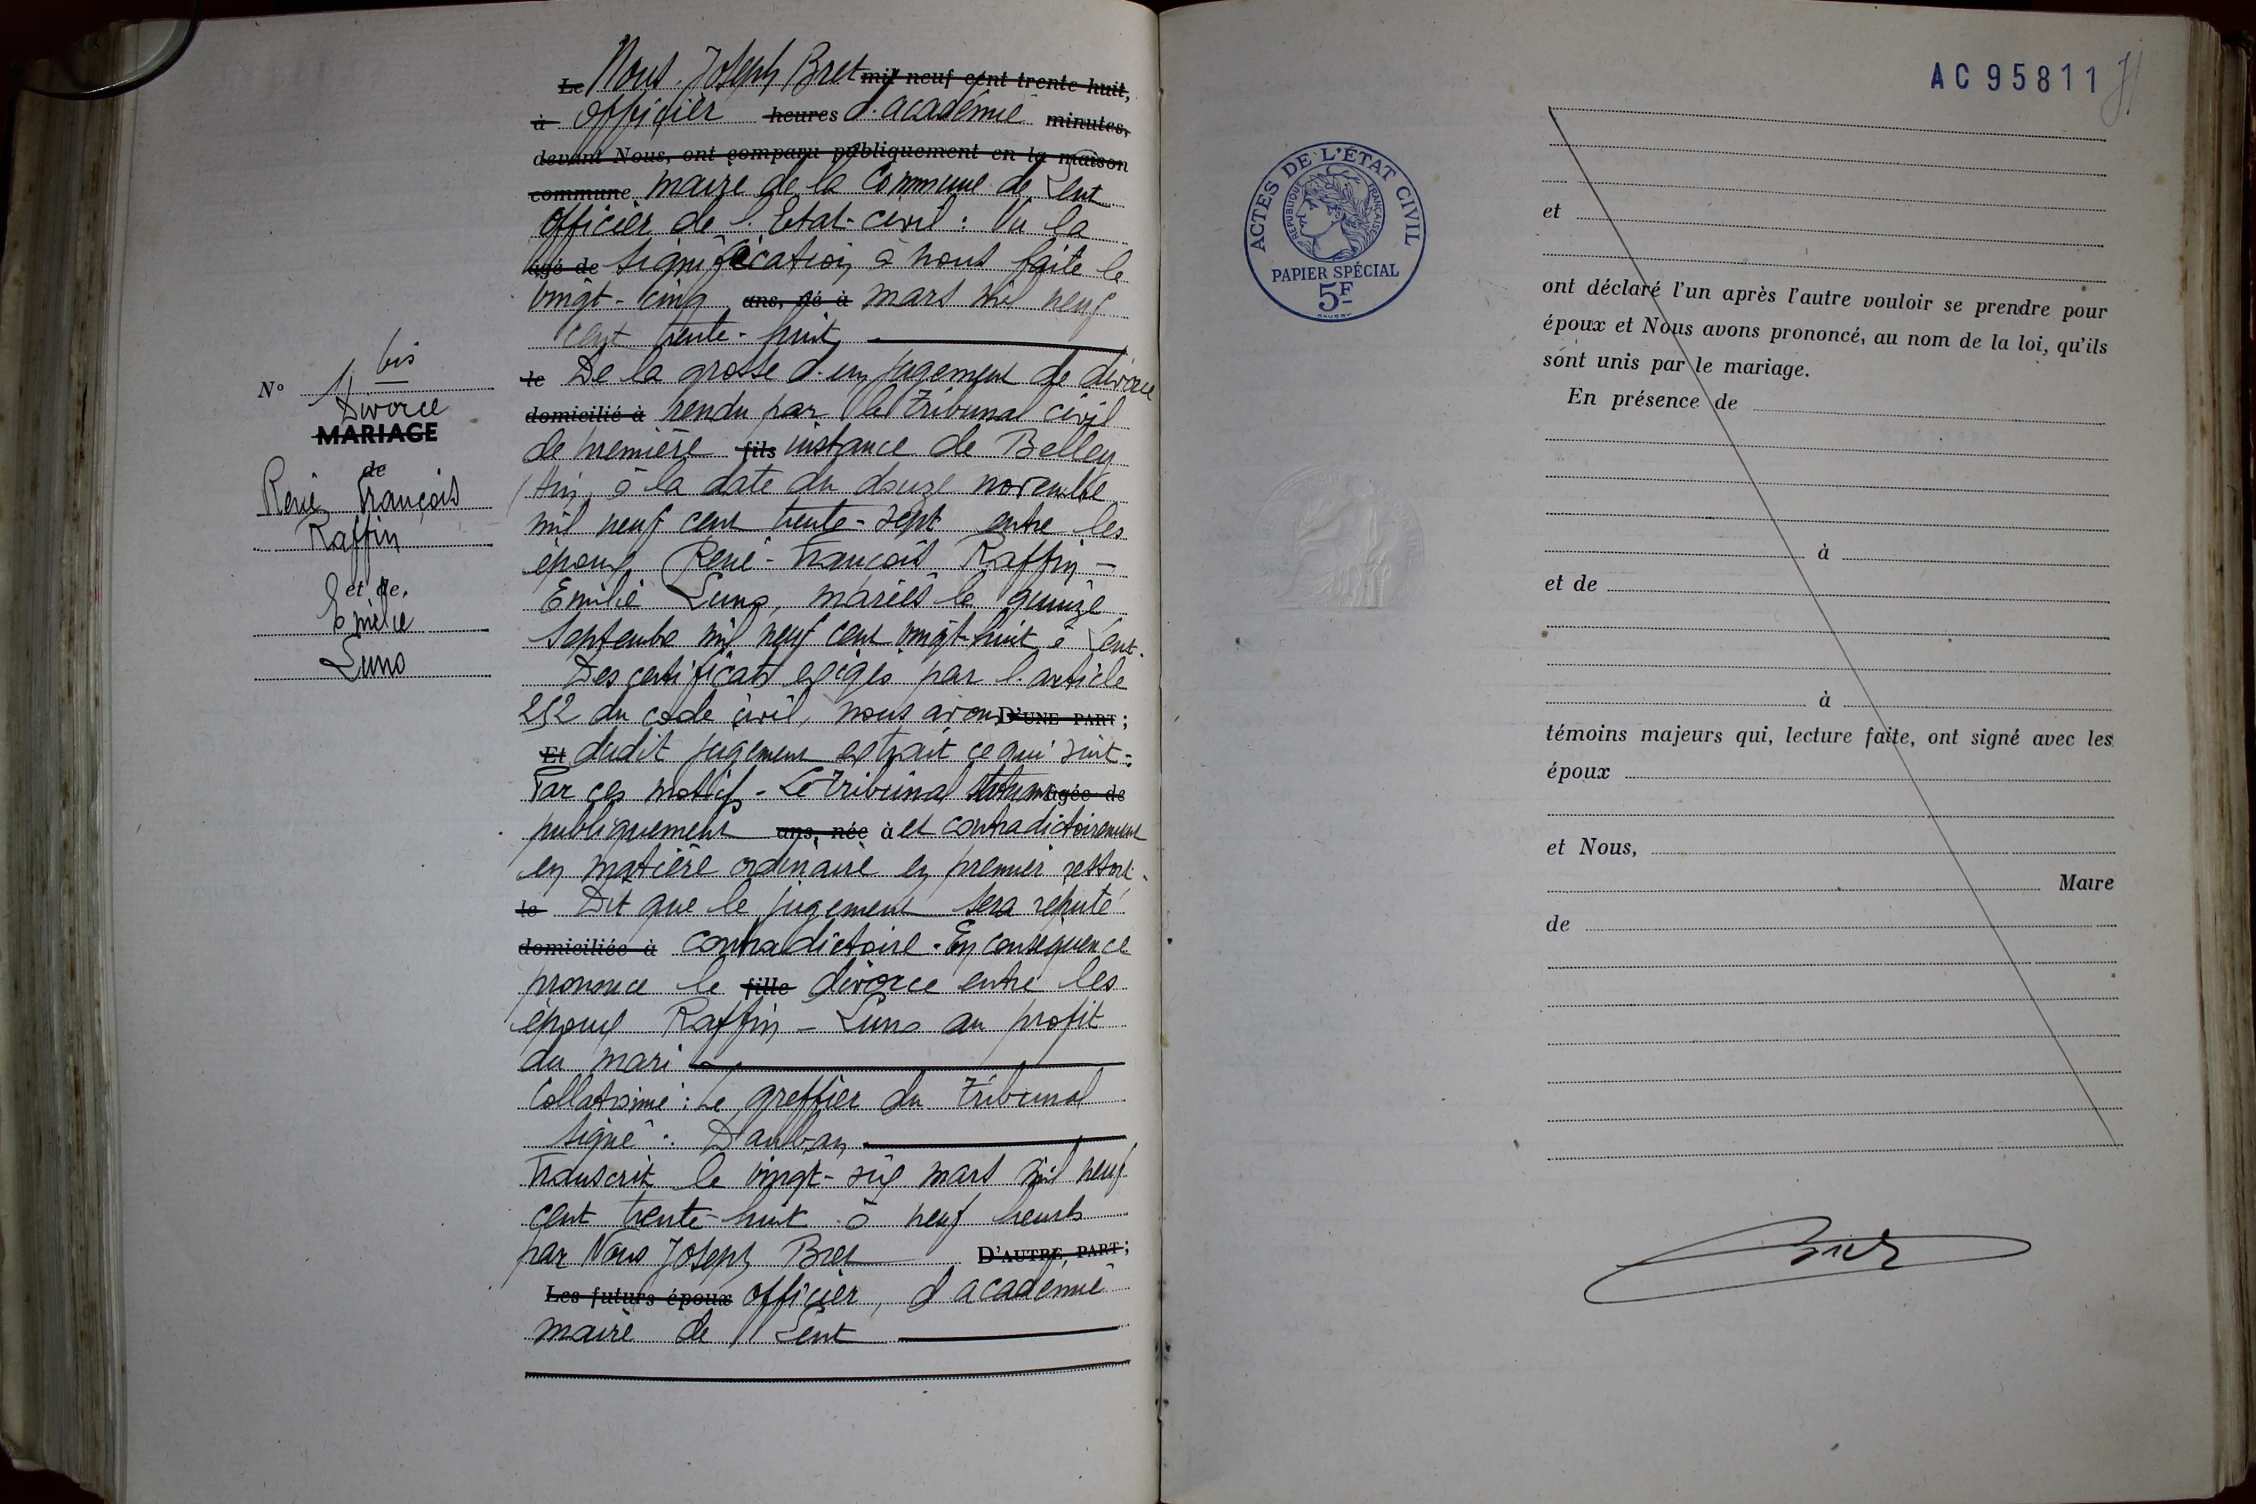 Le Nous Joseph Bret mil neuf cent trente-huit,
à officier heures d'académie minutes,
devant Nous, ont comparu publiquement en la maison
commune maire de la commune de Lent
officier de l'Etat-civil : Vu la
âgé de signification à nous faite le
vingt-cinq ans, né à mars mil neuf
cent trente-huit
le De la grosse d'un jugement de divorce
domicilié à rendu par le Tribunal civil
de première fils instance de Belley
Ain, à la date du douze novembre
mil neuf cent trente-sept entre les
époux René-François Raffin -
Emilie Luno, mariés le quinze
septembre mil neuf cent vingt-huit à Lent.
Des certificats exigés par l'article
252 du code civil, nous avons D'UNE PART ;
Et dudit jugement extrait ce qui suit :
Par ces motifs - Le Tribunal statuant âgée de
publiquement ans, née à et contradictoirement
en matière ordinaire en premier ressort.
le Dit que le jugement sera réputé
domiciliée à contradictoire. En conséquence
prononce le fille divorce entre les
époux Raffin - Luno au profit
du mari
Collationné : Le greffier du Tribunal
signé : Dauban
Transcrit le vingt-six mars mil neuf
cent trente-huit à neuf heures
par Nous Joseph Bret D'AUTRE PART ;
Les futurs époux officier, d'académie
maire de Lent
N° 1 bis
Divorce
MARIAGE
de
René François
Raffin
et de
Emilie
Luno
AC 95811
ACTES DE L'ÉTAT CIVIL
RÉPUBLIQUE FRANÇAISE
PAPIER SPÉCIAL
5F
et
ont déclaré l'un après l'autre vouloir se prendre pour
époux et Nous avons prononcé, au nom de la loi, qu'ils
sont unis par le mariage.
En présence de
à
et de
à
témoins majeurs qui, lecture faite, ont signé avec les
époux
et Nous,
Maire
de
Bret